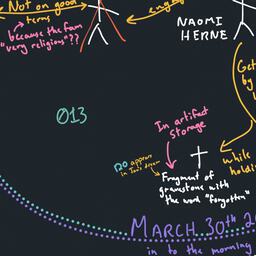 Not on good
terms
because the fam
"very religious"??
eng
NAOMI
HERNE
Get
by
013
In artifact
storage
DO appears
in Tom's dream
Fragment of
gravestone with
the word "forgotten"
while
holdi
MARCH 30th 2
in to the morning